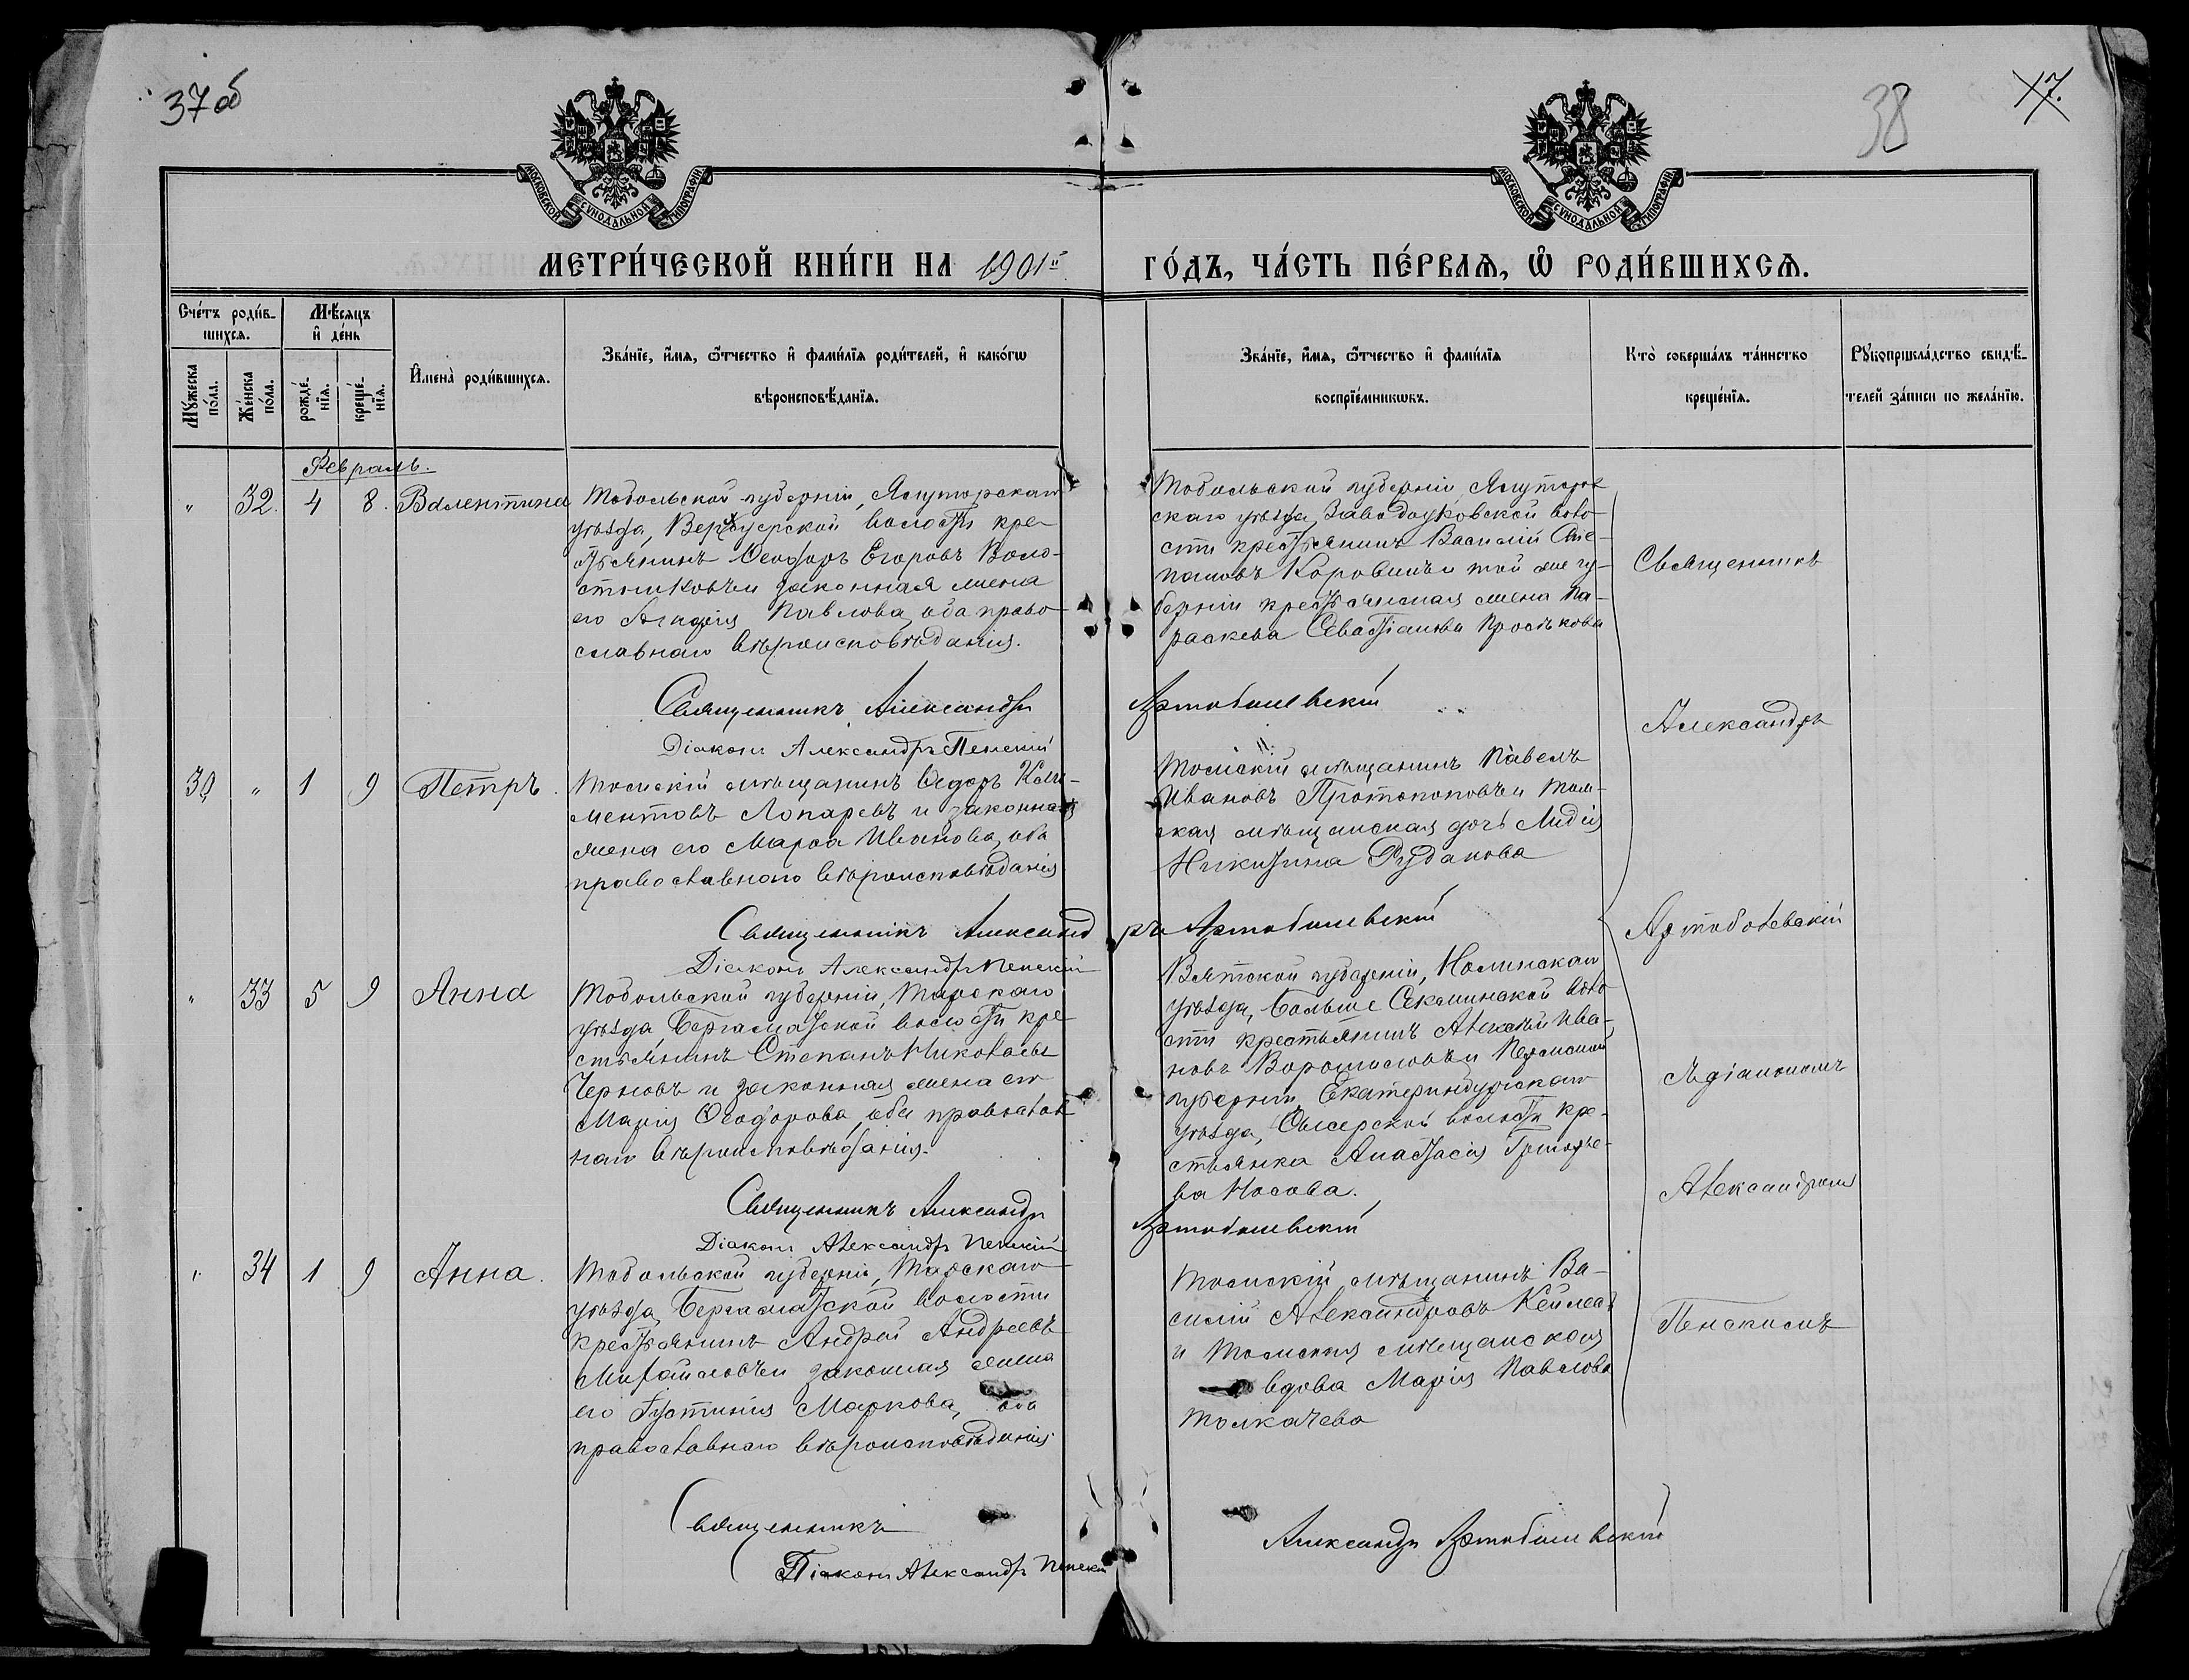 37 об
38
17.
МОСКОВСКОЙ СѴНОДАЛЬНОЙ ТИПОГРАФІИ
МОСКОВСКОЙ СѴНОДАЛЬНОЙ ТИПОГРАФІИ
МЕТРИ́ЧЕСКОЙ КНИ́ГИ НА 1901й ГО́ДЪ, ЧА́СТЬ ПЕ́РВАѦ, Ѽ РОДИ́ВШИХСѦ.
Сче́тъ роди́в-
шихсѧ.
Мѣ́сѧцъ
и҆ де́нь
Мꙋ́жеска по́ла.
Же́нска по́ла.
рожде́-
нїѧ.
креще́-
нїѧ.
И҆мена̀ роди́вшихсѧ.
Зва́нїе, и҆́мѧ, ѻ҆́тчество и҆ фами́лїѧ роди́телей, и҆ како́гѡ
вѣроисповѣ́данїѧ.
Зва́нїе, и҆́мѧ, ѻ҆́тчество и҆ фами́лїѧ
воспрїе́мникѡвъ.
Кто̀ соверша́лъ та́инство
креще́нїѧ.
Рꙋкоприкла́дство свидѣ́-
телей за́писи по жела́нїю.
Февраль.
" 32. 4 8. Валентина
Тобольской губерніи, Ялуторскаго
уѣзда, Верхсуерской волости кре-
стьянинъ Ѳеодоръ Егоровъ Воло-
стниковъ и законная жена
его Агндія Павлова, оба право
славнаго вѣроисповѣданія.
Тобольской губерніи Ялутор-
скаго уѣзда, Заводоуковской воло-
сти крестьянинъ Василій Сте-
пановъ Коровинъ и той же гу-
берніи крестьянская жена Па-
раскева Севастіанова Просѣкова
Священникъ Александръ Артоболевскій
Діаконъ Александръ Пенскій
30 " 1 9 Петръ
Томскій мѣщанинъ Ѳедоръ Кли-
ментовъ Лопаревъ и законная
жена его Марѳа Иванова, оба
православнаго вѣроисповѣданія
Томскій мѣщанинъ Павелъ
Ивановъ Протопоповъ и Том-
ская мѣщанская дочь Лидія
Никитина Рудакова
Священникъ Александръ Артоболевскій
Діаконъ Александръ Пенскій
" 33 5 9 Анна
Тобольской губерніи, Тарскаго
уѣзда, Бергаматской волости кре-
стьянинъ Степанъ Николаевъ
Черновъ и законная жена его
Марія Ѳеодорова, оба православ
наго вѣроисповѣданія.
Вятской губерніи, Нолинскаго
уѣзда, Больше Ситминской воло
сти крестьянинъ Алексѣй Ива-
новъ Ворошиловъ и Пермской
губерніи, Екатеринбургскаго
уѣзда, Сысерской волости кре-
стьянка Анастасія Григорье-
ва Носова.
Священникъ Александръ Артоболевскій
Діаконъ Александръ Пенскій
" 34 1 9 Анна.
Тобольской губерніи, Тарскаго
уѣзда, Бергаматской волости
крестьянинъ Андрей Андреевъ
Михайловъ и законная жена
его Іустинія Маркова, оба
православнаго вѣроисповѣданія
Томскій мѣщанинъ Ва-
силій Александровъ
и Томская мѣщанская
вдова Марія Павлова
Толкачева
Священникъ Александръ Артоболевскій
Діаконъ Александръ Пенскій
Священникъ
Александръ
Артоболевскій
съ діакономъ
Александромъ
Пенскимъ